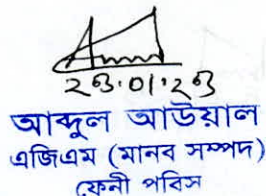 ২৩.০১.২৩
আব্দুল আউয়াল
এজিএম (মানব সম্পদ)
ফেনী পবিস